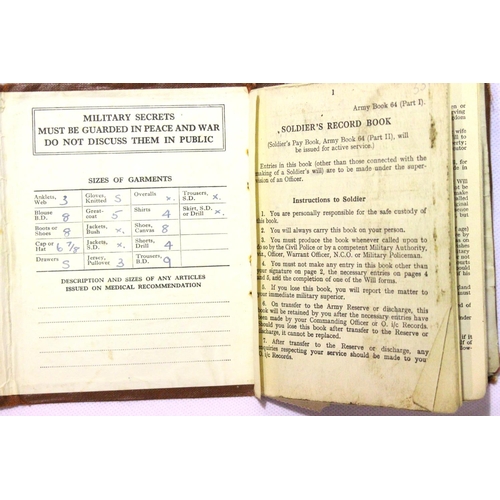 MILITARY SECRETS
MUST BE GUARDED IN PEACE AND WAR
DO NOT DISCUSS THEM IN PUBLIC
SIZES OF GARMENTS
Anklets, Web 3 Gloves, Knitted S Overalls x. Trousers, S.D. x.
Blouse B.D. 8 Great-coat 5 Shirts 4 Skirt, S.D. or Drill x.
Boots or Shoes 8 Jackets, Bush x. Shoes, Canvas 8
Cap or Hat 6 7/8 Jackets, S.D. x. Shorts, Drill 4
Drawers S Jersey, Pullover 3 Trousers, B.D. 9
DESCRIPTION AND SIZES OF ANY ARTICLES
ISSUED ON MEDICAL RECOMMENDATION
1
Army Book 64 (Part I).
SOLDIER'S RECORD BOOK
(Soldier's Pay Book, Army Book 64 (Part II), will
be issued for active service.)
Entries in this book (other than those connected with the
making of a Soldier's will) are to be made under the super-
vision of an Officer.
Instructions to Soldier
1. You are personally responsible for the safe custody of
this book.
2. You will always carry this book on your person.
3. You must produce the book whenever called upon to
do so by the Civil Police or by a competent Military Authority,
Officer, Warrant Officer, N.C.O. or Military Policeman.
4. You must not make any entry in this book other than
your signature on page 2, the necessary entries on pages 4
and 5, and the completion of use of the Will forms.
5. If you lose this book, you will report the matter to
your immediate military superior.
6. On transfer to the Army Reserve or discharge, this
book will be retained by you after the necessary entries have
been made by your Commanding Officer or O. i/c Records.
Should you lose this book after transfer to the Reserve or
discharge, it cannot be replaced.
7. After transfer to the Reserve or discharge, any
enquiries respecting your service should be made to your
O. i/c Records.